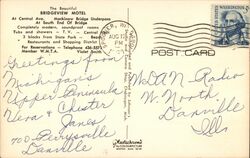 The Beautiful
BRIDGEVIEW MOTEL
At Central Ave. Mackinaw Bridge Underpass
At South End Of Bridge
Completely modern, soundproof rooms
Tubs and showers - T.V. - Central
3 blocks from State Park - Beach
Restaurants and Shopping District
For Reservations - Telephone
Member W.M.T.A. Violet Smith
AUG
PM
POST CARD
Greetings from
Michigan's
Upper Peninsula
Vera & Chester
Jones
700 Perrysville
Danville
WDAN Radio
W North
Danville
Ills